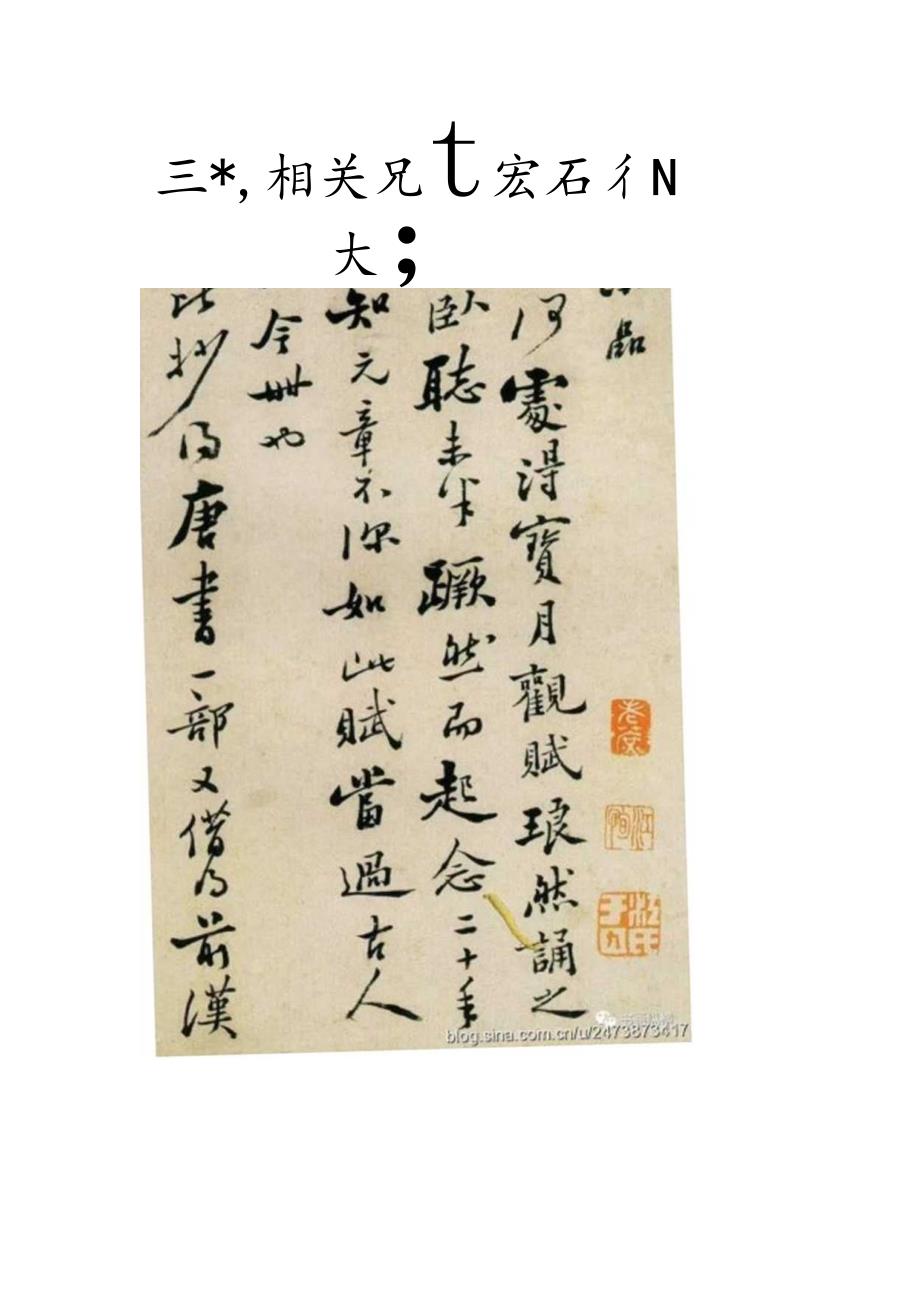 三*,相关兄t宏石彳N
大;
品
何處得寶月觀賦琅然誦之
臥聽未半蹶然而起念二十年
知元章不深如此賦當過古人
今世也
比抄得唐書一部又借得前漢
老
blog.sina.com.cn/u/2473873417